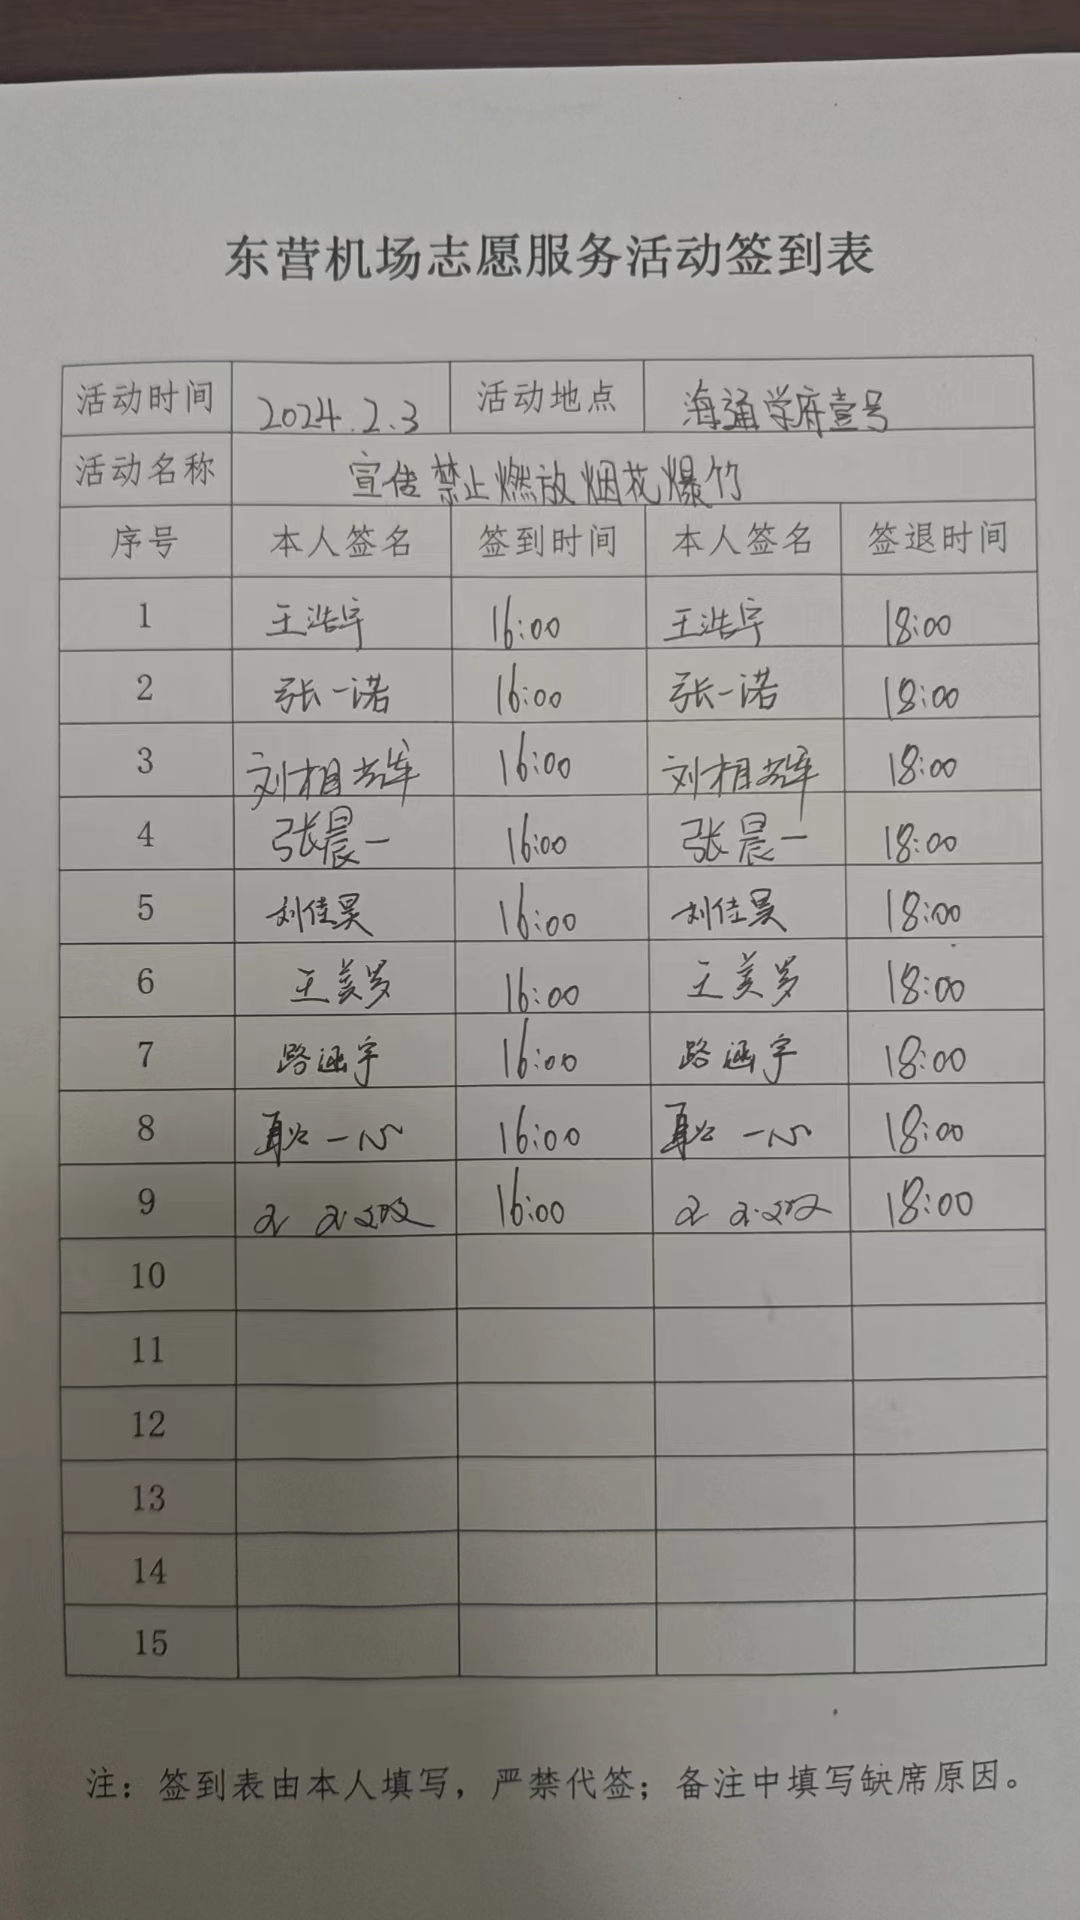 东营机场志愿服务活动签到表
活动时间 2024.2.3 活动地点 海通学府壹号
活动名称 宣传禁止燃放烟花爆竹
序号 本人签名 签到时间 本人签名 签退时间
1 王浩宇 16:00 王浩宇 18:00
2 张一诺 16:00 张一诺 18:00
3 刘相 16:00 刘相 18:00
4 张晨一 16:00 张晨一 18:00
5 刘佳昊 16:00 刘佳昊 18:00
6 王美 16:00 王美 18:00
7 路涵宇 16:00 路涵宇 18:00
8 一心 16:00 一心 18:00
9 16:00 18:00
10
11
12
13
14
15
注：签到表由本人填写，严禁代签；备注中填写缺席原因。